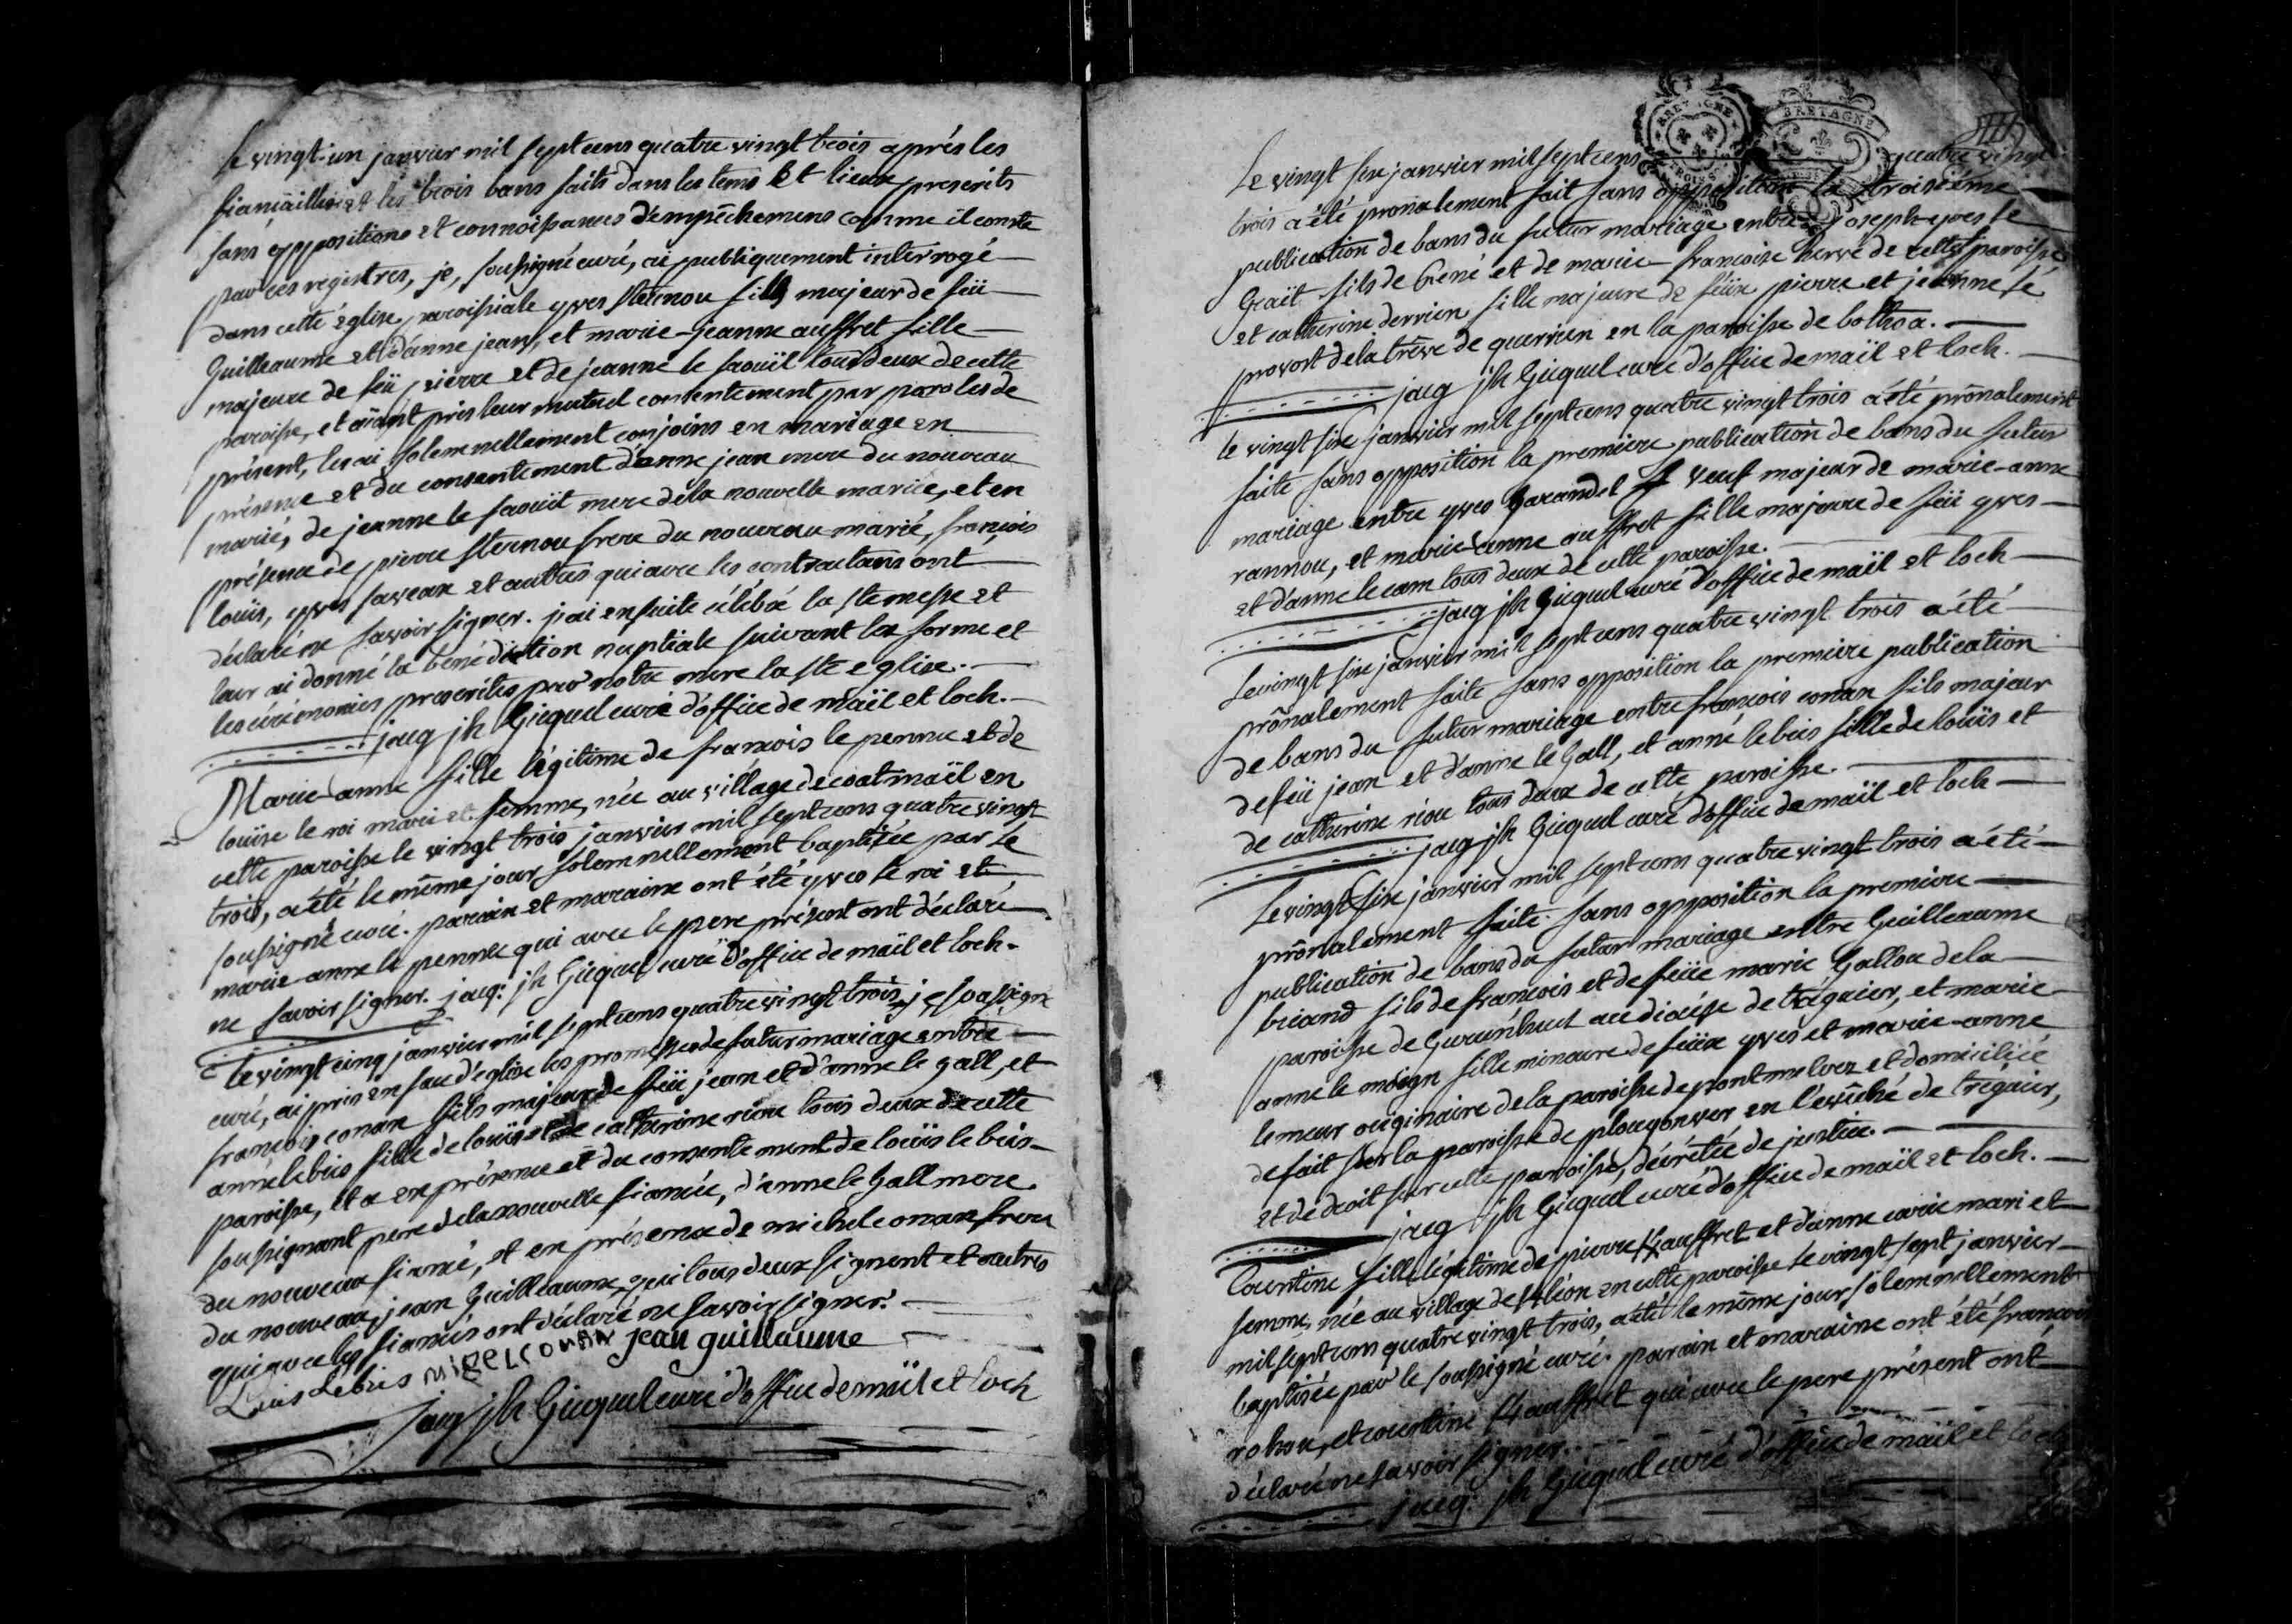 Le vingt-un janvier mil sept cens quatre vingt trois aprés les
fiançailles et les trois bans faits dans les tems Et lieux prescrits
sans oppositions et connoissances d'empêchemens comme il conste
par ces registres, je, soussigné curé, ai publiquement interrogé
dans cette église paroissiale yves sternou fils majeur de feü
Guilleaume et d'anne jean, et marie-jeanne auffret fille
majeure de feü pierre et de jeanne le saoüil tous deux de cette
paroisse, et aïant pris leur mutuel consentement par paroles de
présent, les ai solemnellement conjoins en mariage en
présence et du consentement d'anne jean mere du nouveau
marié, de jeanne le saoüil mere dela nouvelle mariée, et en
présence de pierre sternou frere du nouveau marié, françois
louis, yves saveax et autres qui avec les contractans ont
déclaré ne savoir signer. j'ai ensuite célébré la ste messe et
leur ai donné la bénédiction nuptiale suivant les forme et
les cérémonies prescrites par notre mere la ste eglise.
jacq jh Gicquel curé d'office de maïl et loch.
Marie-anne fille légitime de françois le pennec et de
louise le roi mari et femme, née au village de coatmaïl en
cette paroisse le vingt trois janvier mil sept cens quatre vingt
trois, a été le même jour solemnellement baptisée par le
soussigné curé. parain et maraine ont été yves le roi et
marie-anne le pennec qui avec le pere présent ont déclaré
ne savoir signer. jacq: jh Gicquel curé d'office de maïl et loch.
Le vingt cinq janvier mil sept cens quatre vingt trois, je soussigné
curé, ai pris en face d'eglise les promesses de futur mariage entre
françois conan fils majeur de feü jean et d'anne le gall, et
anne le bris fille de louis et de catherine riou tous deux de cette
paroisse, et a en présence et du consentement de louis le bris
soussignant pere dela nouvelle fiancée, d'anne le Gall mere
du nouveau fiancé, et en présence de michel conan frere
du nouveau, jean Guilleaume, qui tous deux signent et autres
qui avec les fiancés ont déclaré ne savoir signer.
Luis Lebris MIGEL CONAN jean guillaume
jacq jh Gicquel curé d'office de maïl et loch
BRETAGNE
TROIS
BRETAGNE
Le vingt six janvier mil sept cens quatre vingt
trois a été pronalement fait sans opposition la troisiéme
publication de bans du futur mariage entre joseph-yves le
Graët fils de René et de marie-francoise hervé de cette paroisse
et catherine derrien fille majeure de feüx pierre et jeanne le
provost dela trêve de querrien en la paroisse de bothoa.
jacq jh Gicquel curé d'office de maïl et loch.
le vingt six janvier mil sept cens quatre vingt trois a été prônalement
faite sans opposition la premiere publication de bans du futur
mariage entre yves garandel veuf majeur de marie-anne
rannou, et marie-anne auffret fille majeure de feü yves
et d'anne le cam tous deux de cette paroisse.
jacq jh Gicquel curé d'office de maïl et loch
Le vingt six janvier mil sept cens quatre vingt trois a été
prônalement faite sans opposition la premiere publication
de bans du futur mariage entre françois conan fils majeur
de feü jean et d'anne le Gall, et anne le bris fille de louis et
de catherine riou tous deux de cette paroisse.
jacq jh Gicquel curé d'office de maïl et loch
Le vingt six janvier mil sept cens quatre vingt trois a été
prônalement faite sans opposition la premiere
publication de bans du futur mariage entre Guilleaume
briand fils de francois et de feüe marie Gallou dela
paroisse de Gurunhuel au diocése de tréguier, et marie
anne le moign fille mineure de feüx yves et marie-anne
le meur originaire dela paroisse de pont melvez et domiciliée
de fait sur la paroisse de plougonver en l'evêché de tréguier,
et de droit sur cette paroisse, décrétée de justice.
jacq jh Gicquel curé d'office de maïl et loch.
Courtine fille légitime de pierre auffret et d'anne mari et
femme, née au village de en cette paroisse le vingt sept janvier
mil sept cens quatre vingt trois, a été le même jour solemnellement
baptisée par le soussigné curé. parain et maraine ont été françois
rohou, et courtine auffret qui avec le pere présent ont
déclaré ne savoir signer.
jacq: jh Gicquel curé d'office de maïl et loch